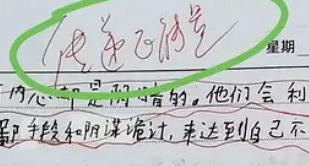 传递正能量
星期
内心都是阴暗的。他们会利
鄙手段和阴谋诡计，来达到自己不